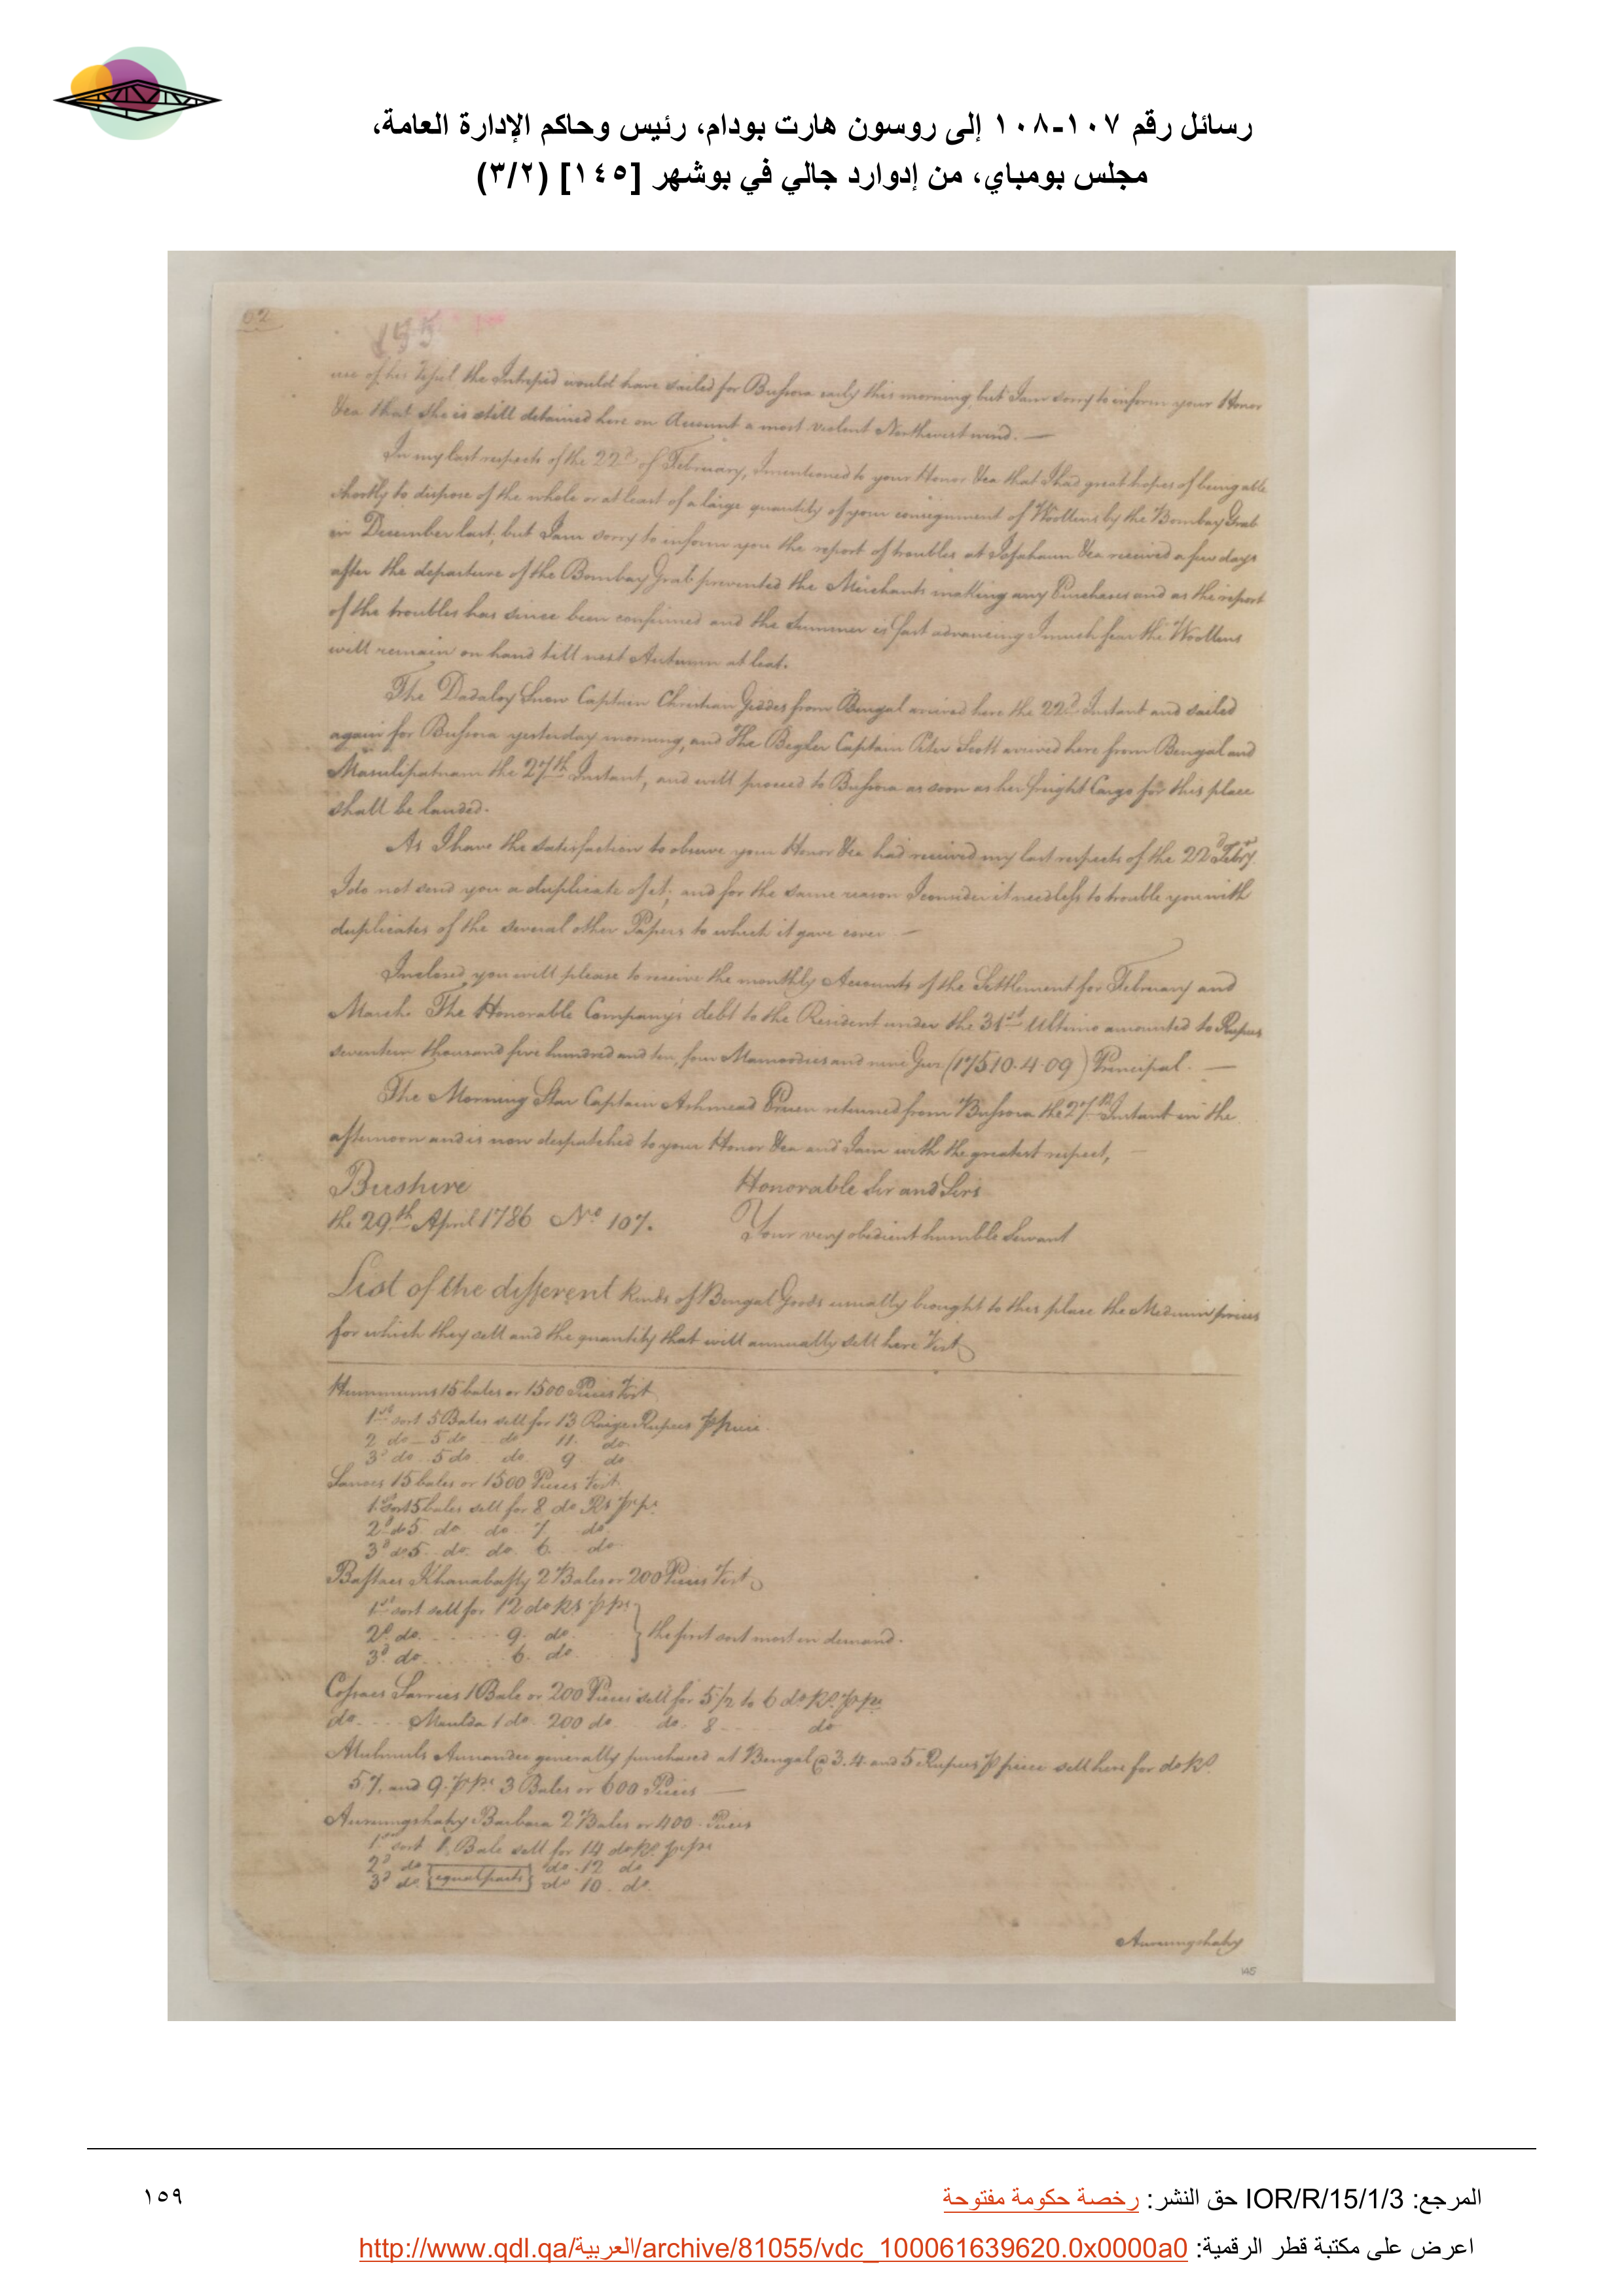 رسائل رقم ١٠٧-١٠٨ إلى روسون هارت بودام، رئيس وحاكم الإدارة العامة،
مجلس بومباي، من إدوارد جالي في بوشهر [١٤٥] (٣/٢)
62
195
of his Vessel the Intrepid would have sailed for Bussora early this morning, but I am sorry to inform your Honor
&ca that she is still detained here on Account a most violent Northwest wind. —
In my last respects of the 22d of February, I mentioned to your Honor &ca that I had great hopes of being able
shortly to dispose of the whole or at least of a large quantity of your consignment of Woollens by the Bombay Grab
in December last; but I am sorry to inform you the report of troubles at Ispahaun &ca received a few days
after the departure of the Bombay Grab prevented the Merchants making any Purchases and as the report
of the troubles has since been confirmed and the Summer is fast advancing I much fear the Woollens
will remain on hand till next Autumn at least.
The Dadaloy Snow Captain Christian Geddes from Bengal arrived here the 22d Instant and sailed
again for Bussora yesterday morning, and The Begler Captain Peter Scott arrived here from Bengal and
Masulipatnam the 27th Instant, and will proceed to Bussora as soon as her freight Cargo for this place
shall be landed.
As I have the satisfaction to observe your Honor &ca had received my last respects of the 22d Febry.
I do not send you a duplicate of it; and for the same reason I consider it needless to trouble you with
duplicates of the several other Papers to which it gave cover —
Inclosed you will please to receive the monthly Accounts of the Settlement for February and
March. The Honorable Company's debt to the Resident under the 31st Ultimo amounted to Rupees
seventeen thousand five hundred and ten, four Mamoodies and nine Gux (17510.4.09) Principal. —
The Morning Star Captain Ashmead Pruen returned from Bussora the 27th Instant in the
afternoon and is now despatched to your Honor &ca and I am with the greatest respect, —
Bushire Honorable Sir and Sirs
the 29th April 1786 No 107. Your very obedient humble Servant
List of the different kinds of Bengal Goods usually brought to this place the Medium prices
for which they sell and the quantity that will annually sell here Vizt
Hummums 15 bales or 1500 Pieces Vizt
1st sort 5 Bales sell for 13 Raige Rupees p piece.
2 do – 5 do do 11. do.
3d do. 5 do. do. 9 do
Sannoes 15 bales or 1500 Pieces Vizt
1 Sort 5 bales sell for 8 do Rs p ps.
2d do 5. do. do. 7 do.
3d do 5. do. do. 6. do.
Baftaes Khanabafty 2 Bales or 200 Pieces Vizt
1st sort sell for 12 do Rs p ps.
2d do. 9. do. } the first sort most in demand.
3d do. 6. do.
Cossaes Sannies 1 Bale or 200 Pieces sell for 5 1/2 to 6 do Rs. p ps.
do. Maulda 1 do. 200 do. do. 8 do
Mulmuls Annandee generally purchased at Bengal @ 3. 4. and 5 Rupees p piece sell here for do Rs.
5. 7. and 9. p ps. 3 Bales or 600 Pieces —
Aurungshahy Barbara 2 Bales or 400. Pieces
1st sort 1. Bale sell for 14 do Rs. p ps
2d do do. 12 do
3d do. {equal parts} do 10. do.
Aurungshahy
145
المرجع: IOR/R/15/1/3 حق النشر: رخصة حكومة مفتوحة
١٥٩
اعرض على مكتبة قطر الرقمية: http://www.qdl.qa/العربية/archive/81055/vdc_100061639620.0x0000a0